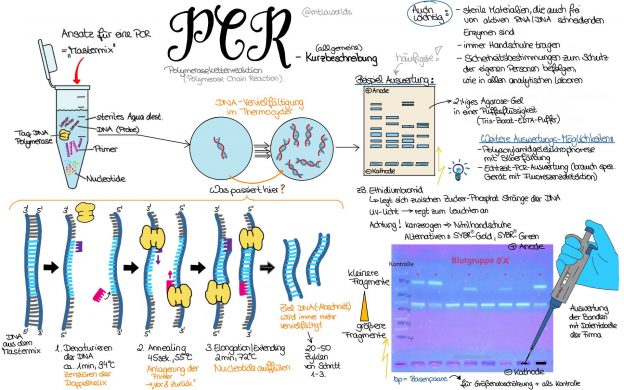 PCR
@mtlaworlds
Ansatz für eine PCR
= "Mastermix"
Polymerasekettenreaktion
(Polymerase Chain Reaction)
(allgemeine)
- Kurzbeschreibung
Auch
wichtig:
- sterile Materialien, die auch frei
von aktiven RNA/DNA schneidenden
Enzymen sind
- immer Handschuhe tragen
- Sicherheitsbestimmungen zum Schutz
der eigenen Personen befolgen,
wie in allen analytischen Laboren
häufigste!
Beispiel Auswertung:
⊕ Anode
⊖ Kathode
steriles Aqua dest.
DNA (Probe)
Taq DNA
Polymerase
Primer
Nucleotide
DNA-Vervielfältigung
im Thermocycler
Was passiert hier?
2%iges Agarose-Gel
in einer Pufferflüssigkeit
(Tris-Borat-EDTA-Puffer)
Weitere Auswertungs-Möglichkeiten:
- Polyacrylamidgelelektrophorese
mit Silberfärbung
- Echtzeit-PCR-Auswertung (brauch spez.
Gerät mit Fluoreszenzdetektion)
zB Ethidiumbromid
↳ legt sich zwischen Zucker-Phosphat Stränge der DNA
UV-Licht → regt zum leuchten an
Achtung! kanzerogen → Nitrilhandschuhe
Alternativen: SYBR® Gold, SYBR® Green
3'
5'
DNA
aus dem
Mastermix
1. Denaturieren
der DNA
ca. 1min, 94°C
Zerstören der
Doppelhelix
2. Annealing
45sek, 55°C
Anlagerung der
Primer
→ vor & zurück"
3. Elongation/Extending
2min, 72°C
Nucleotide auffüllen
Ziel DNA (-Abschnitt)
wird immer mehr
vervielfältigt
20-50
Zyklen
von Schritt
1-3.
⊕ Anode
kleinere
Fragmente
größere
Fragmente
Kontrolle
Blutgruppe 0'A'
⊖ Kathode
bp = Basenpaare
für Größenabschätzung als Kontrolle
Auswertung
der Banden
mit Datentabelle
der Firma